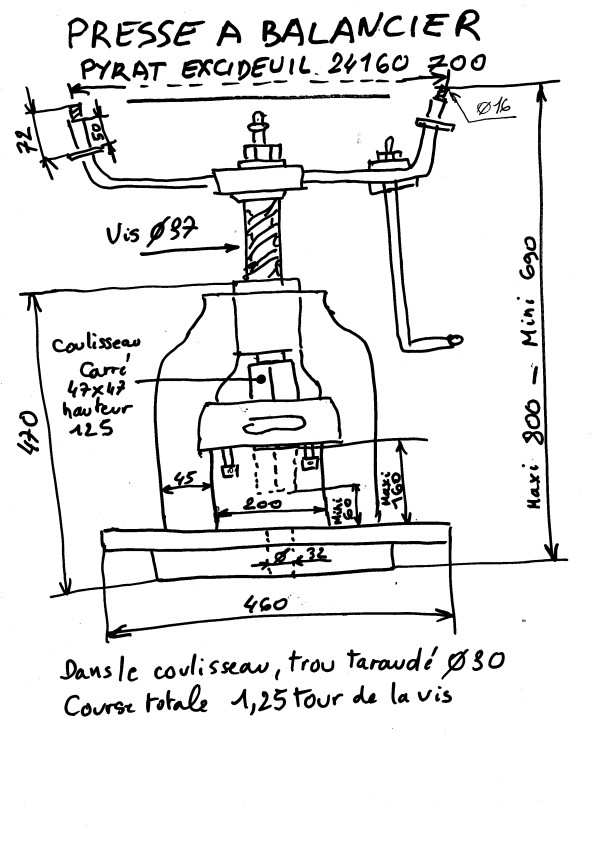 PRESSE A BALANCIER
PYRAT EXCIDEUIL 24160
700
Ø16
72
50
Vis Ø37
Coulisseau
Carré
47x47
hauteur
125
470
Maxi 800 — Mini 690
45
200
Mini 60
Maxi 160
Ø 32
460
Dans le coulisseau, trou taraudé Ø30
Course totale 1,25 tour de la vis